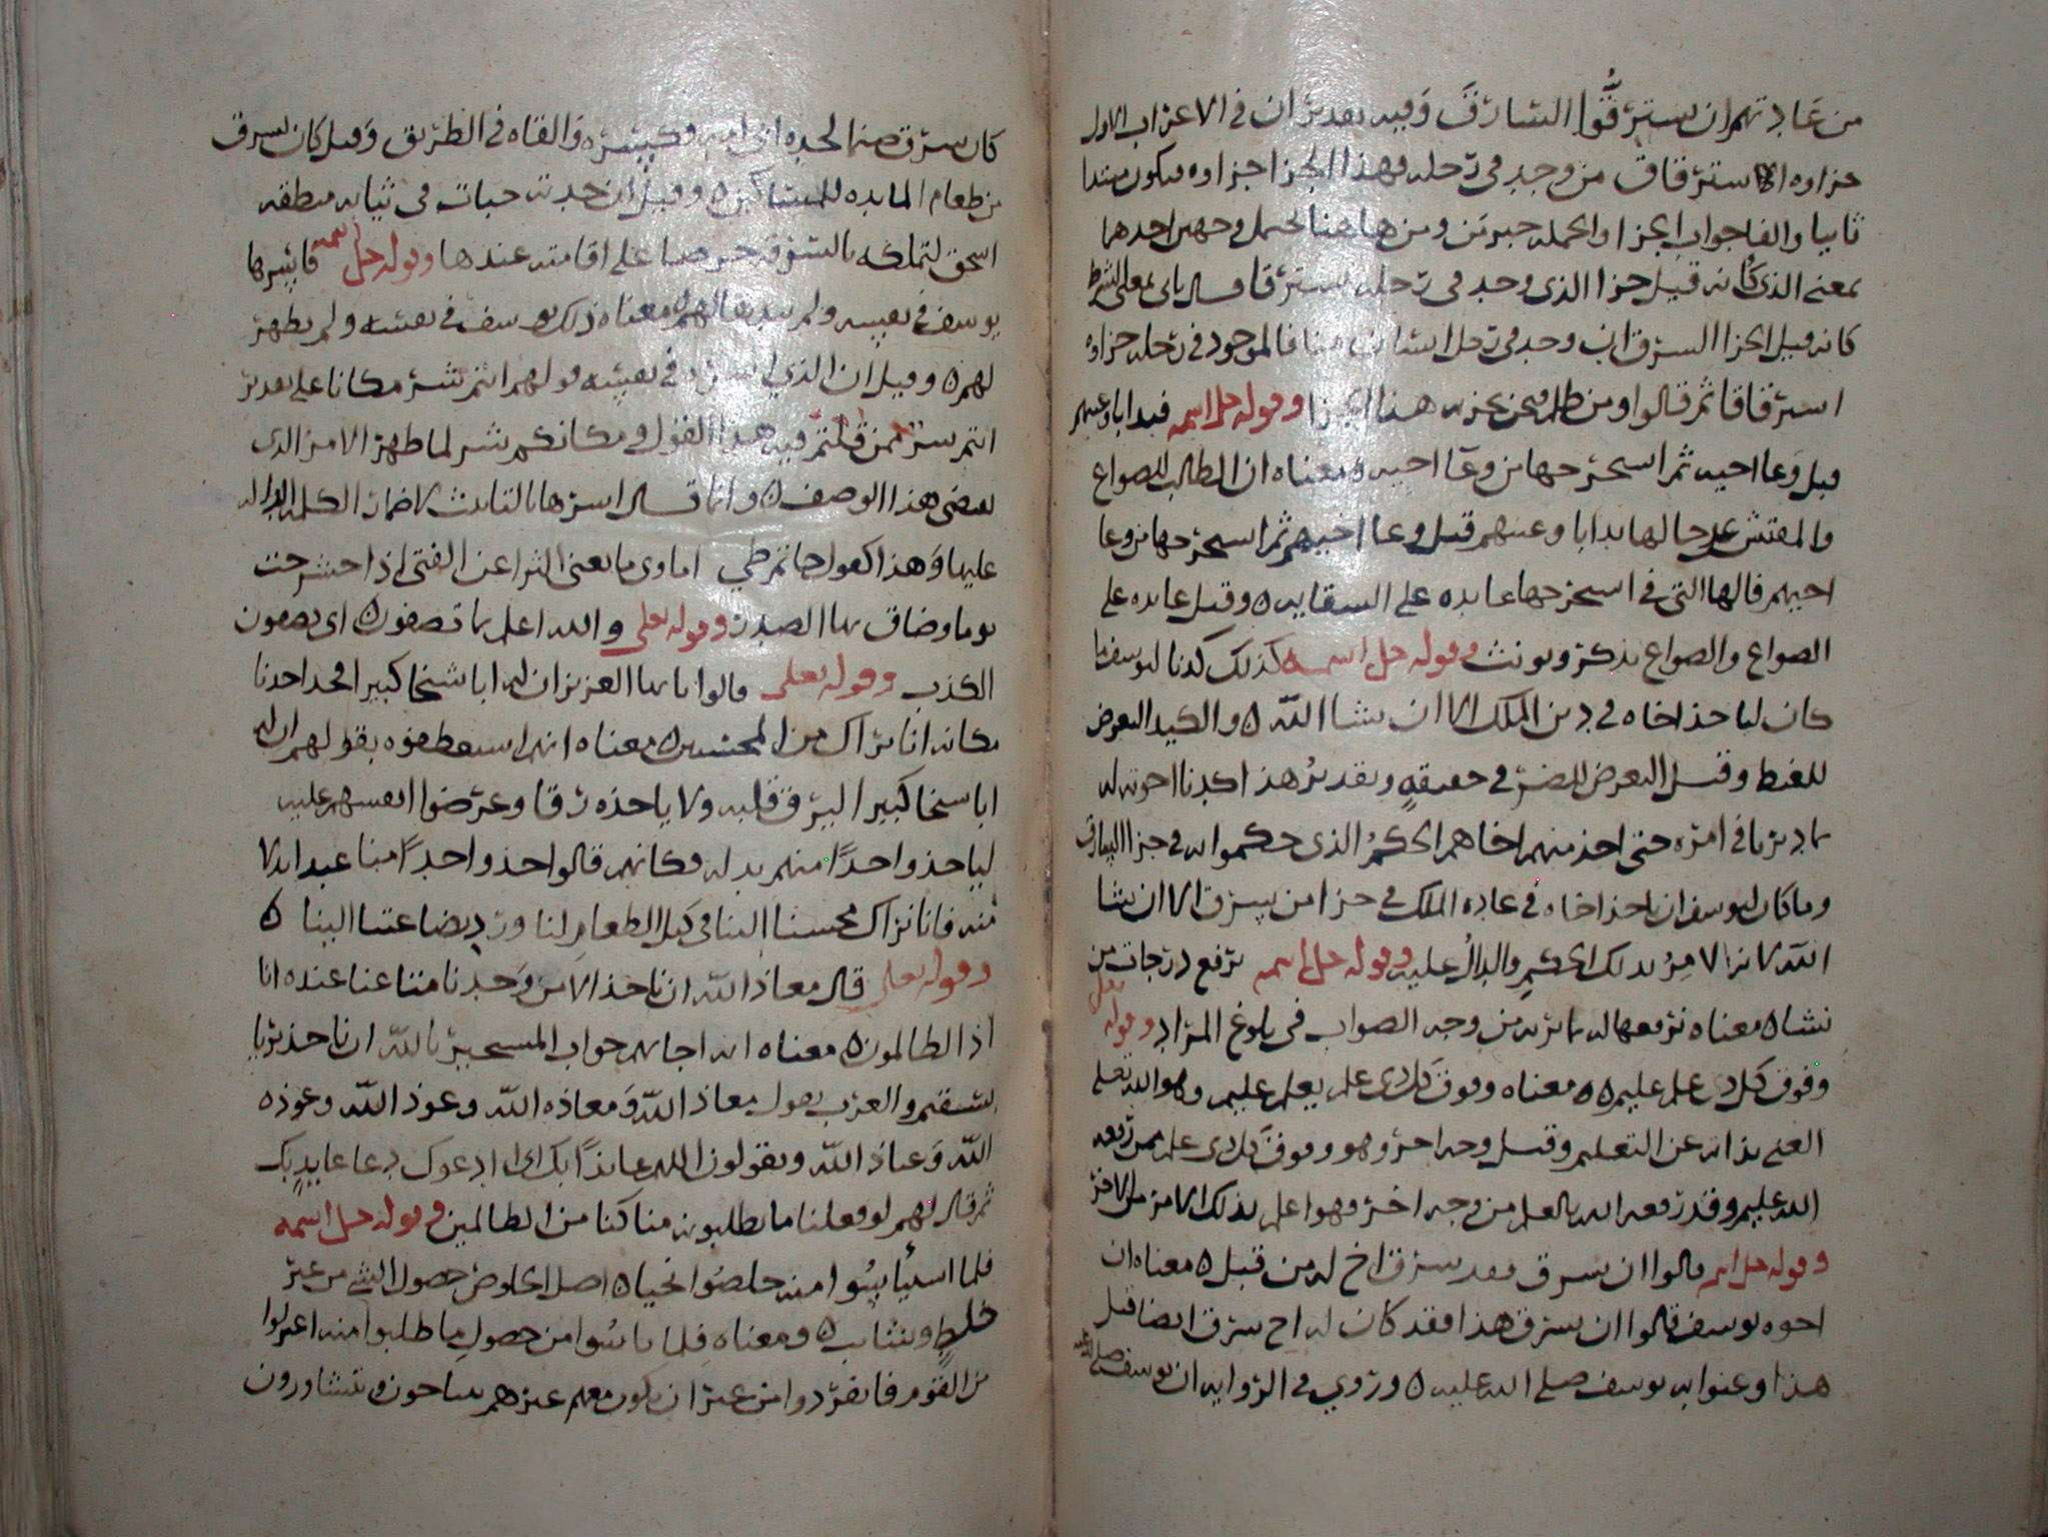 من عادتهم ان يسترقوا السارق وفيه تقديران في الاعراب الاول
جزاوه الاسترقاق من وجد في رحله فهذا الجزا جزاوه فيكون مبتدا
ثانيا والفا جواب الجزا والجمله خبر من ومن هاهنا تحتمل وجهين احدهما
بمعنى الذي كانه قيل جزا الذي وجد في رحله يسترقاق الثاني بمعنى الشرط
كانه قيل الجزا السرق ان وجد في رحل انسان منا فالموجود في رحله جزاوه
استرقاقا ثم قالوا ومن ظلم نحن نجزيه هذا الجزا وقوله جل اسمه فبدا باوعيتهم
قبل وعا اخيه ثم استخرجها من وعا اخيه ومعناه ان الطالب للصواع
والمفتش على حالها بدا باوعيتهم قبل وعا اخيهم ثم استخرجها من وعا
اخيهم فالها التي في استخرجها عايده على السقايه ه وقيل عايده على
الصواع والصواع يذكر ويونث وقوله جل اسمه كذلك كدنا ليوسف ما
كان لياخذ اخاه في دين الملك الا ان يشا الله ه والكيد التعرض
للغيظ وقيل التعرض للضر في حقيقه وتقدير هذا كدنا اخوته له
بما دبرنا في امره حتى اخذ منهم اخاهم الحكم الذي حكموا له في جزا السارق
وما كان ليوسف ان ياخذ اخاه في عاده الملك في جزا من يسرق الا ان يشا
الله لانه الامر بذلك الحكم والدال عليه وقوله جل اسمه نرفع درجات من
نشا ه معناه نرفعها له بما نريه من وجه الصواب في بلوغ المراد وقوله تعلى
وفوق كل ذي علم عليم ه ه معناه وفوق كل ذي علم يعلم عليم وهو الله تعلى
الغني بذاته عن التعليم وقيل وجه اخر وهو وفوق كل ذي علم ممن رفعه
الله عليم وقد رفعه الله بالعلم من وجه اخر وهو اعلم بذلك الامر من الاخر
وقوله جل اسمه قالوا ان يسرق فقد سرق اخ له من قبل ه معناه ان
اخوه يوسف قالوا ان يسرق هذا فقد كان له اخ سرق ايضا قبل
هذا وعنوا به يوسف صلى الله عليه ه وروي في الروايه ان يوسف صلى الله عليه
كان سرق صنما لجده ابي امه وكسره والقاه في الطريق وقيل كان يسرق
من طعام المايده للمساكين ه وقيل ان جدته خبات في ثيابه منطقه
اسحق لتملكه بالسرقه حرصا على اقامته عندها وقوله جل اسمه فاسرها
يوسف في نفسه ولم يبدها لهم ه معناه ذلك يوسف في نفسه ولم يظهر
لهم ه وقيل ان الذي اسره في نفسه قولهم انتم شر مكانا على تقدير
انتم شر ممن قلتم فيه هذا القول ومكانكم شر لما ظهر الامر الذي
يقتضي هذا الوصف ه وانما قال اسرها بالتانيث لاضمار الكلمه الداله
عليها وهذا كقول حاتم طي اماوي ما يغني الثرا عن الفتى اذا حشرجت
يوما وضاق بها الصدر وقوله تعلى والله اعلم بما تصفون ه اي تصفون
الكذب وقوله تعلى قالوا يا ايها العزيز ان له ابا شيخا كبيرا فخذ احدنا
مكانه انا نراك من المحسنين ه معناه انهم استعطفوه بقولهم ان له
ابا شيخا كبيرا ليرق قلبه ولا ياخذه رقا وعرضوا انفسهم عليه
لياخذ واحدا منهم بدله وكانهم قالوا خذ واحدا منا عبدا بدلا
منه فانا نراك محسنا الينا في كيل الطعام لنا ورد بضاعتنا الينا ه
وقوله تعلى قال معاذ الله ان ناخذ الا من وجدنا متاعنا عنده انا
اذا لظالمون ه معناه انه اجابهم جواب المستجير بالله ان ناخذ بريا
بسقيم والعرب يقول معاذ الله ومعاذه الله وعوذ الله وعوذه
الله وعياذ الله ويقولون اللهم عايذا بك اي ادعوك دعا عايذ بك
ثم قال لهم لو فعلنا ما تطلبونه منا كنا من الظالمين وقوله جل اسمه
فلما استيأسوا منه خلصوا نجيا ه اصل الخلوص حصول الشي من غير
خلط وشايب ه ومعناه فلما يائسوا من حصول ما طلبوا منه اعتزلوا
من القوم فانفردوا من غير ان يكون معهم غيرهم يتناجون ويتشاورون